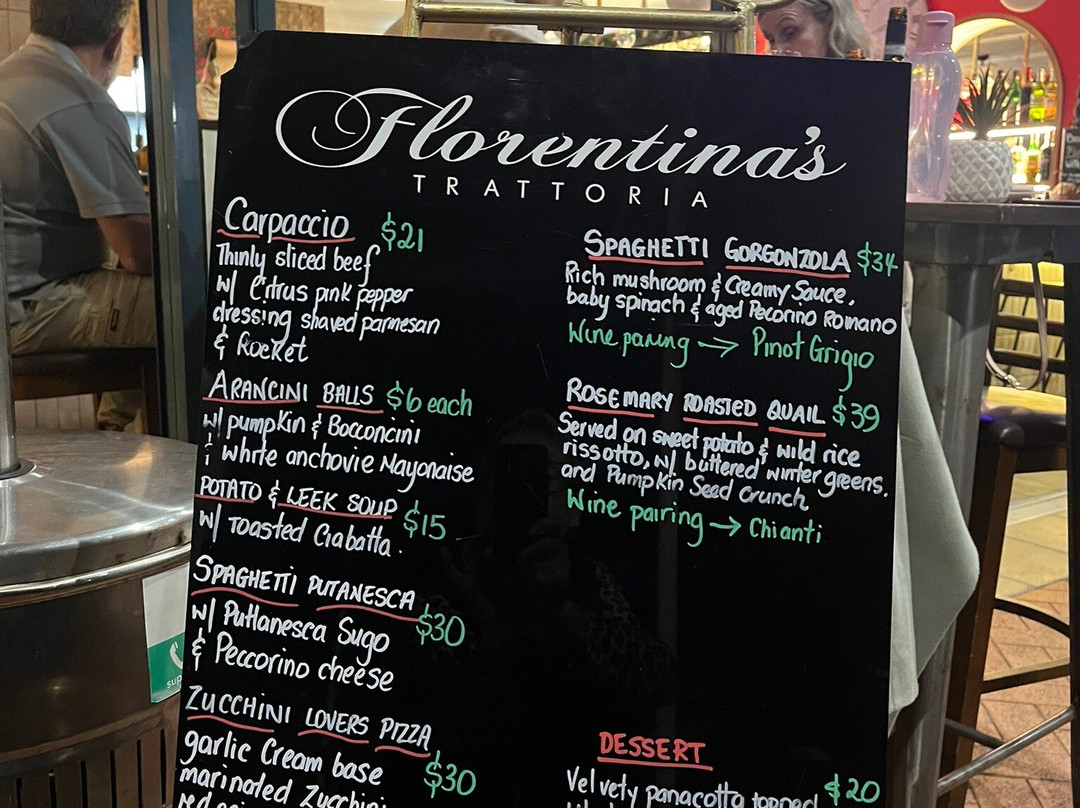 Florentina's
TRATTORIA
Carpaccio $21
Thinly sliced beef
w/ Citrus pink pepper
dressing shaved parmesan
& Rocket
ARANCINI BALLS $6 each
w/ pumpkin & Bocconcini
& white anchovie Mayonaise
POTATO & LEEK SOUP $15
w/ Toasted Ciabatta.
SPAGHETTI PUTANESCA $30
w/ Puttanesca Sugo
& Peccorino cheese
ZUCCHINI LOVERS PIZZA $30
garlic Cream base
marinated Zucchini
SPAGHETTI GORGONZOLA $34
Rich mushroom & Creamy Sauce,
baby spinach & aged Pecorino Romano
Wine pairing → Pinot Grigio
ROSEMARY ROASTED QUAIL $39
Served on sweet potato & wild rice
rissotto, w/ buttered winter greens.
and Pumpkin Seed Crunch
Wine pairing → Chianti
DESSERT
Velvety panacotta topped $20